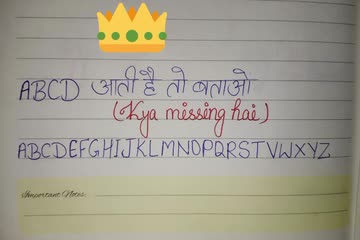 ABCD आती है तो बताओ
(Kya missing hai)
ABCDEFGHIJKLMNOPQRSTVWXYZ
Important Notes: